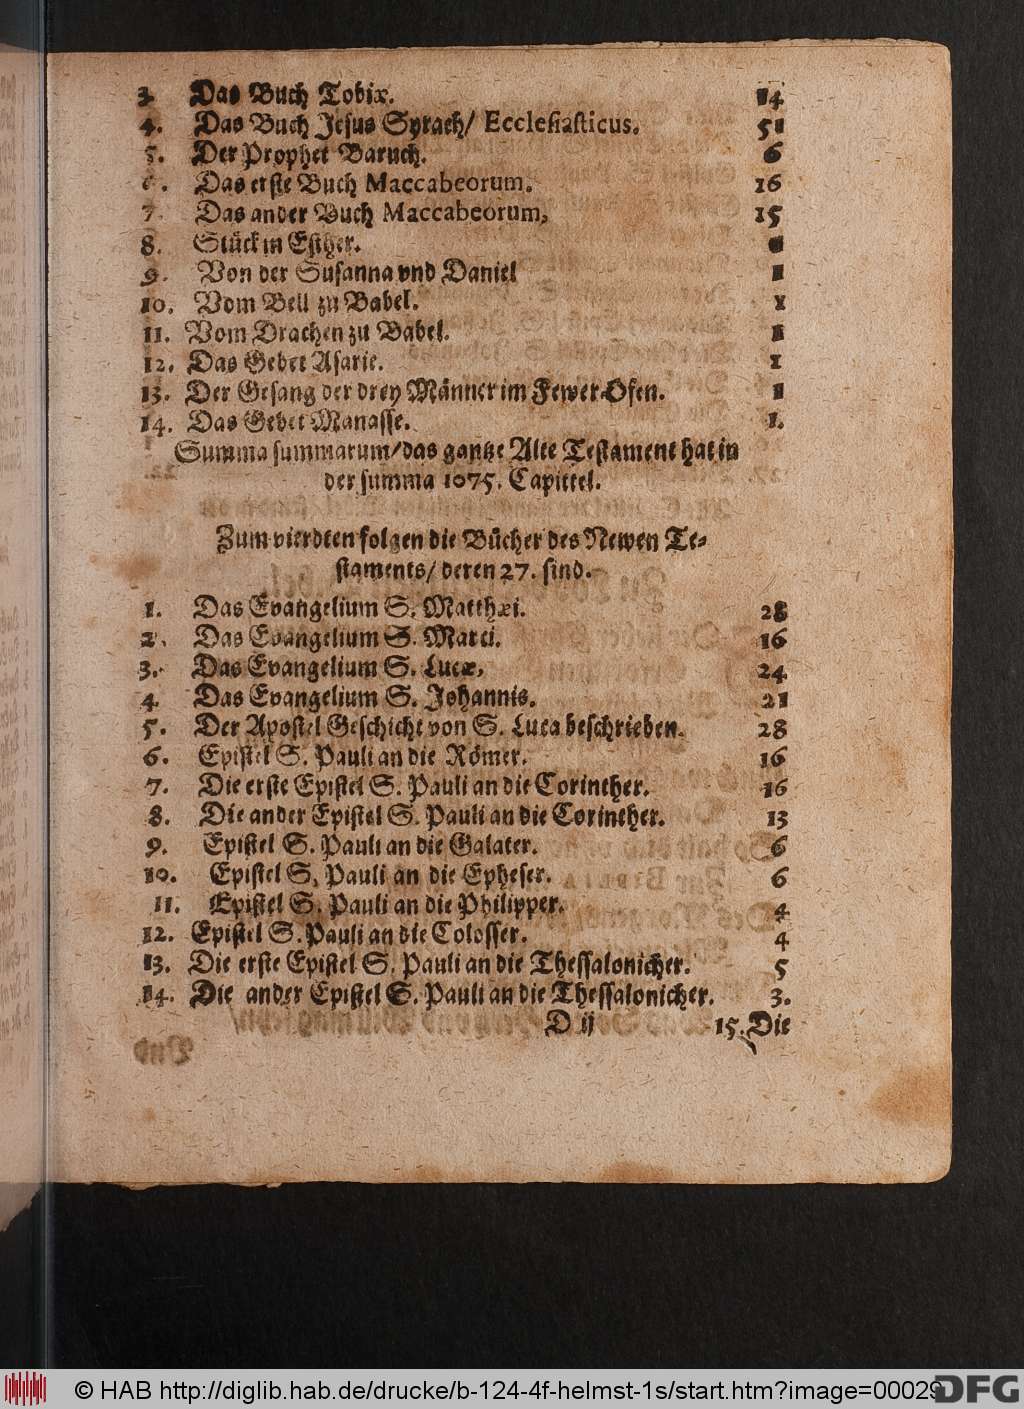 3. Das Buch Tobiæ. 14
4. Das Buch Jesus Syrach/ Ecclesiasticus. 51
5. Der Prophet Baruch. 6
6. Das erste Buch Maccabeorum. 16
7. Das ander Buch Maccabeorum, 15
8. Stück in Esther. 1
9. Von der Susanna vnd Daniel 1
10. Vom Bell zu Babel. 1
11. Vom Drachen zu Babel. 1
12. Das Gebet Asarie. 1
13. Der Gesang der drey Männer im Fewer-Ofen. 1
14. Das Gebet Manasse. 1.
Summa summarum/das gantze Alte Testament hat in
der summa 1075. Capittel.
Zum vierdten folgen die Bücher des Newen Te-
staments/ deren 27. sind.
1. Das Evangelium S. Matthæi. 28
2. Das Evangelium S. Marci. 16
3. Das Evangelium S. Lucæ, 24
4. Das Evangelium S. Johannis. 21
5. Der Apostel Geschicht von S. Luca beschrieben. 28
6. Epistel S. Pauli an die Römer. 16
7. Die erste Epistel S. Pauli an die Corinther. 16
8. Die ander Epistel S. Pauli an die Corinther. 13
9. Epistel S. Pauli an die Galater. 6
10. Epistel S, Pauli an die Epheser. 6
11. Epistel S. Pauli an die Philipper. 4
12. Epistel S. Pauli an die Colosser. 4
13. Die erste Epistel S. Pauli an die Thessalonicher. 5
14. Die ander Epistel S. Pauli an die Thessalonicher. 3.
D ij 15. Die
© HAB http://diglib.hab.de/drucke/b-124-4f-helmst-1s/start.htm?image=00029
DFG